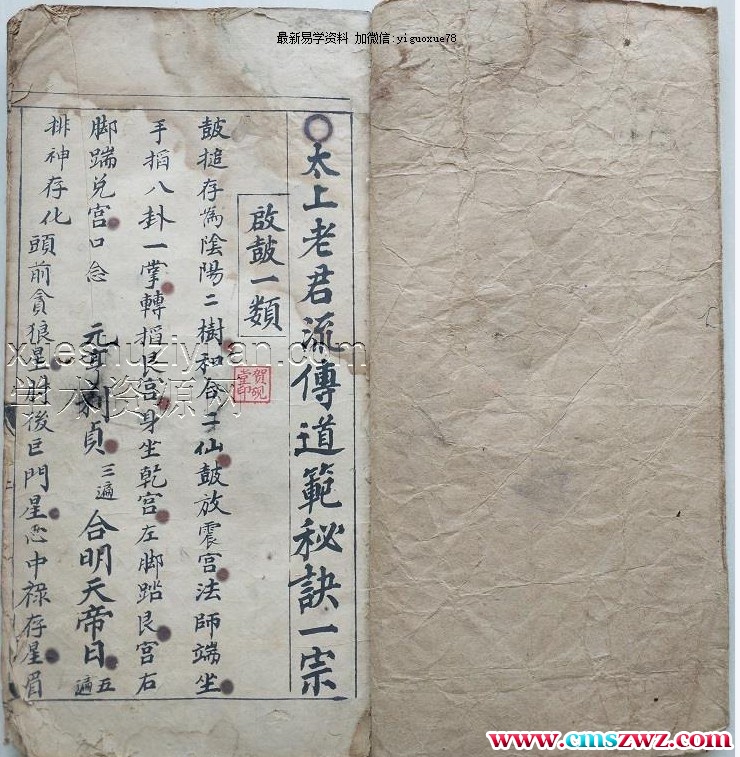 最新易学资料 加微信:yiguoxue78
太上老君流傳道範秘訣一宗
啟鼓一類
鼓搥存為陰陽二樹和合二仙鼓放震宮法師端坐
手搯八卦一掌轉搯艮宮身坐乾宮左脚踏艮宮右
脚踹兊宮口念 元亨利貞 三遍 合明天帝日 五遍
排神存化頭前貪狼星肘後巨門星心中祿存星眉
賀硯堂印
xueshuziyuan.com
学术资源网
www.cmszwz.com